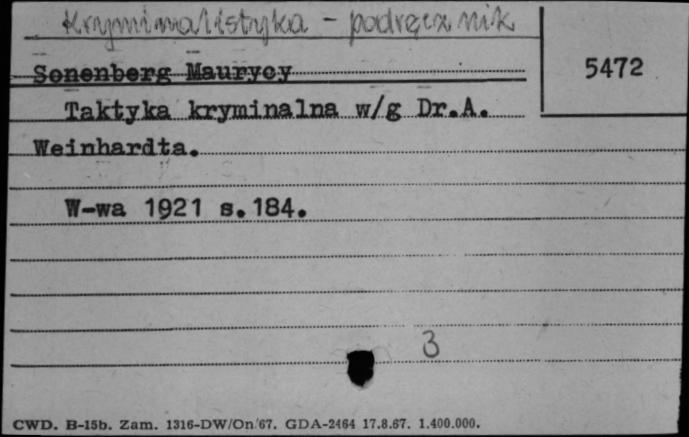 Kryminalistyka - podręcznik
Sonenberg Maurycy
5472
Taktyka kryminalna w/g Dr.A.
Weinhardta.
W-wa 1921 s.184.
3
CWD. B-15b. Zam. 1316-DW/On/67. GDA-2464 17.8.67. 1.400.000.